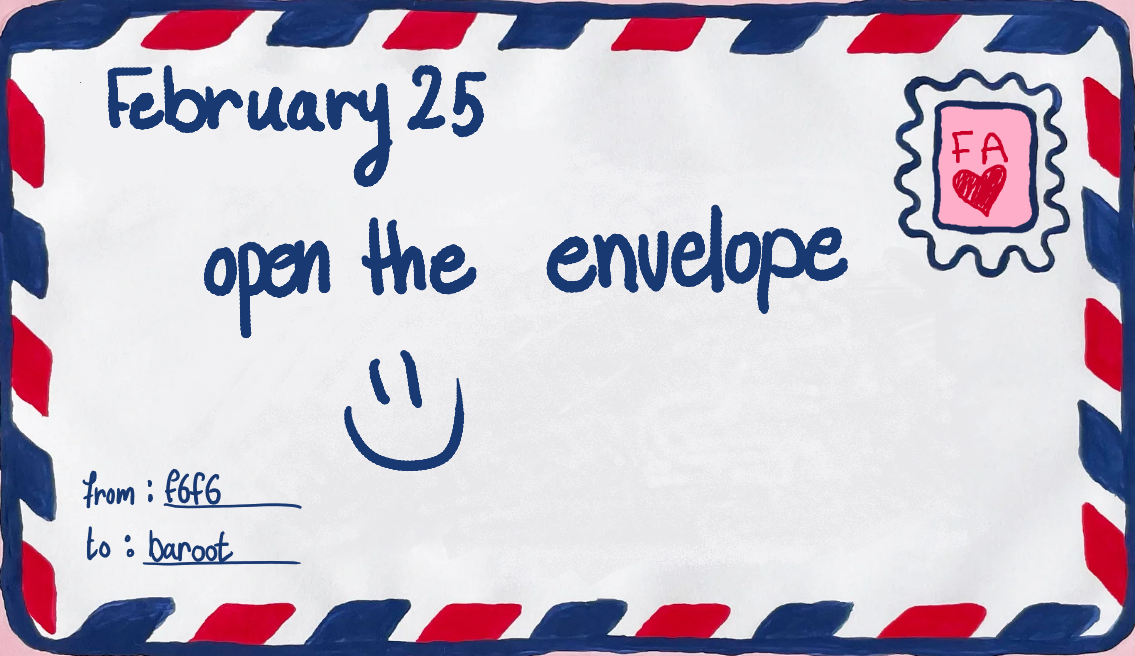 February 25
FA
open the envelope
from : f6f6
to : baroot